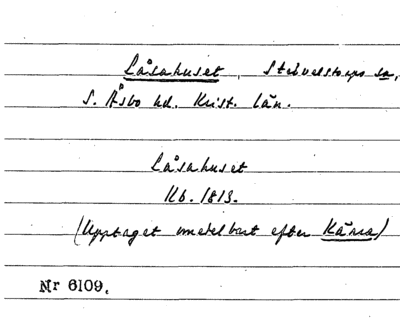 Låsahuset, Stidvelstorps sn,
S. Åsbo hd. Krist. län.
Låsahuset
Kb. 1813.
(Upptaget omedelbart efter Kärra)
Nr 6109.